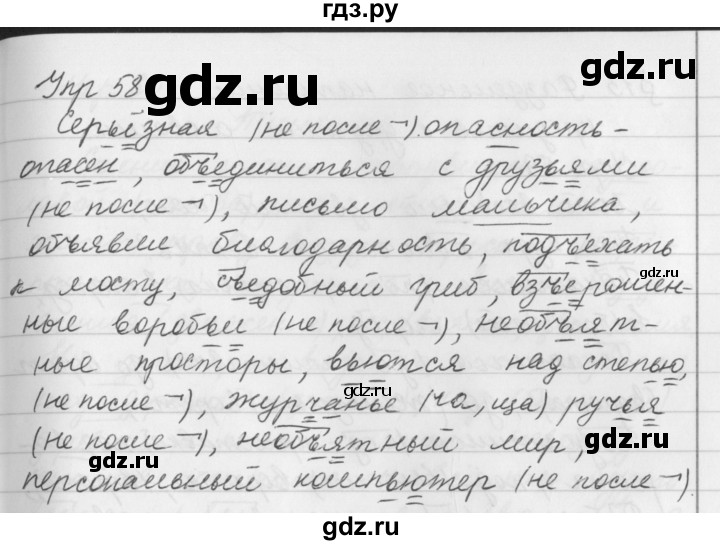 гдз.ру
Упр 58
gdz.ru
Серьёзная (не после ¬) опасность -
опасен, объединиться с друзьями
(не после ¬), письмо мальчика,
объявили благодарность, подъехать
gdz.ru
к мосту, съедобный гриб, взъерошен-
ные воробьи (не после ¬), необъят-
ные просторы, вьются над степью,
gdz.ru
(не после ¬), журчанье (ча, ща) ручья
(не после ¬), необъятный мир,
gdz.ru
gdz.ru
персональный компьютер (не после ¬)
gdz.ru